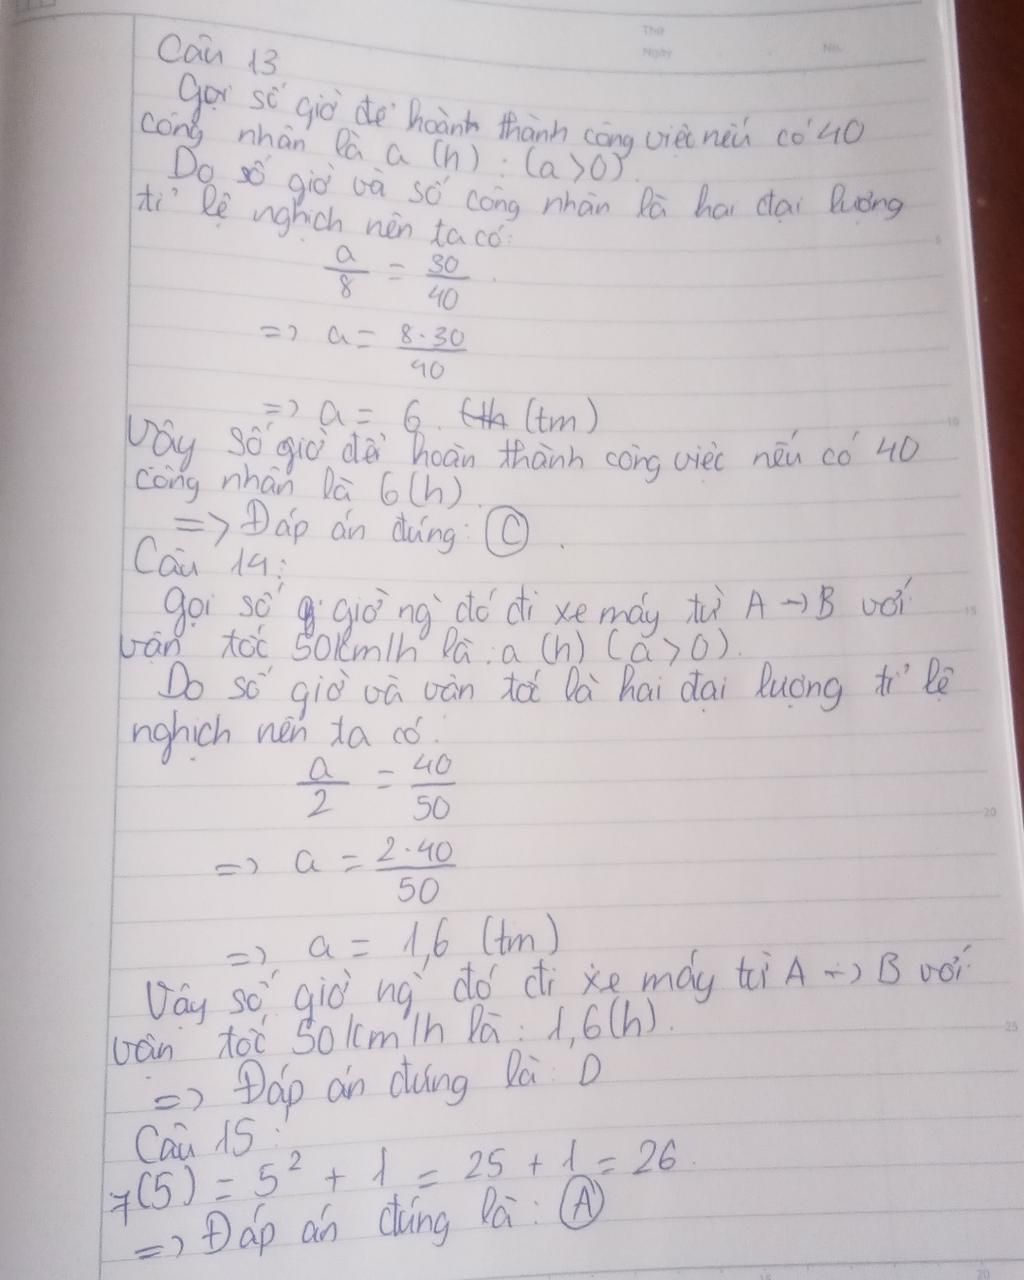 Thứ
Ngày No.
Câu 13
Gọi số giờ để hoành thành công việc nếu có 40
công nhân là a (h) : (a>0)
Do số giờ và số công nhân là hai đại lượng
tỉ lệ nghịch nên ta có:
a/8 = 30/40
=> a = 8.30/40
=> a = 6 (tm)
Vậy số giờ để hoàn thành công việc nếu có 40
công nhân là 6(h)
=> Đáp án đúng: C.
Câu 14:
Gọi số giờ ng đó đi xe máy từ A -> B với
vận tốc 50km/h là: a (h) (a>0).
Do số giờ và vân tốc là hai đại lượng tỉ lệ
nghịch nên ta có:
a/2 = 40/50
=> a = 2.40/50
=> a = 1,6 (tm)
Vậy số giờ ng đó đi xe máy từ A -> B với
vân tốc 50km/h là: 1,6(h).
=> Đáp án đúng là: D
Câu 15:
f(5) = 5² + 1 = 25 + 1 = 26.
=> Đáp án đúng là: A
5
10
15
20
25
15 20